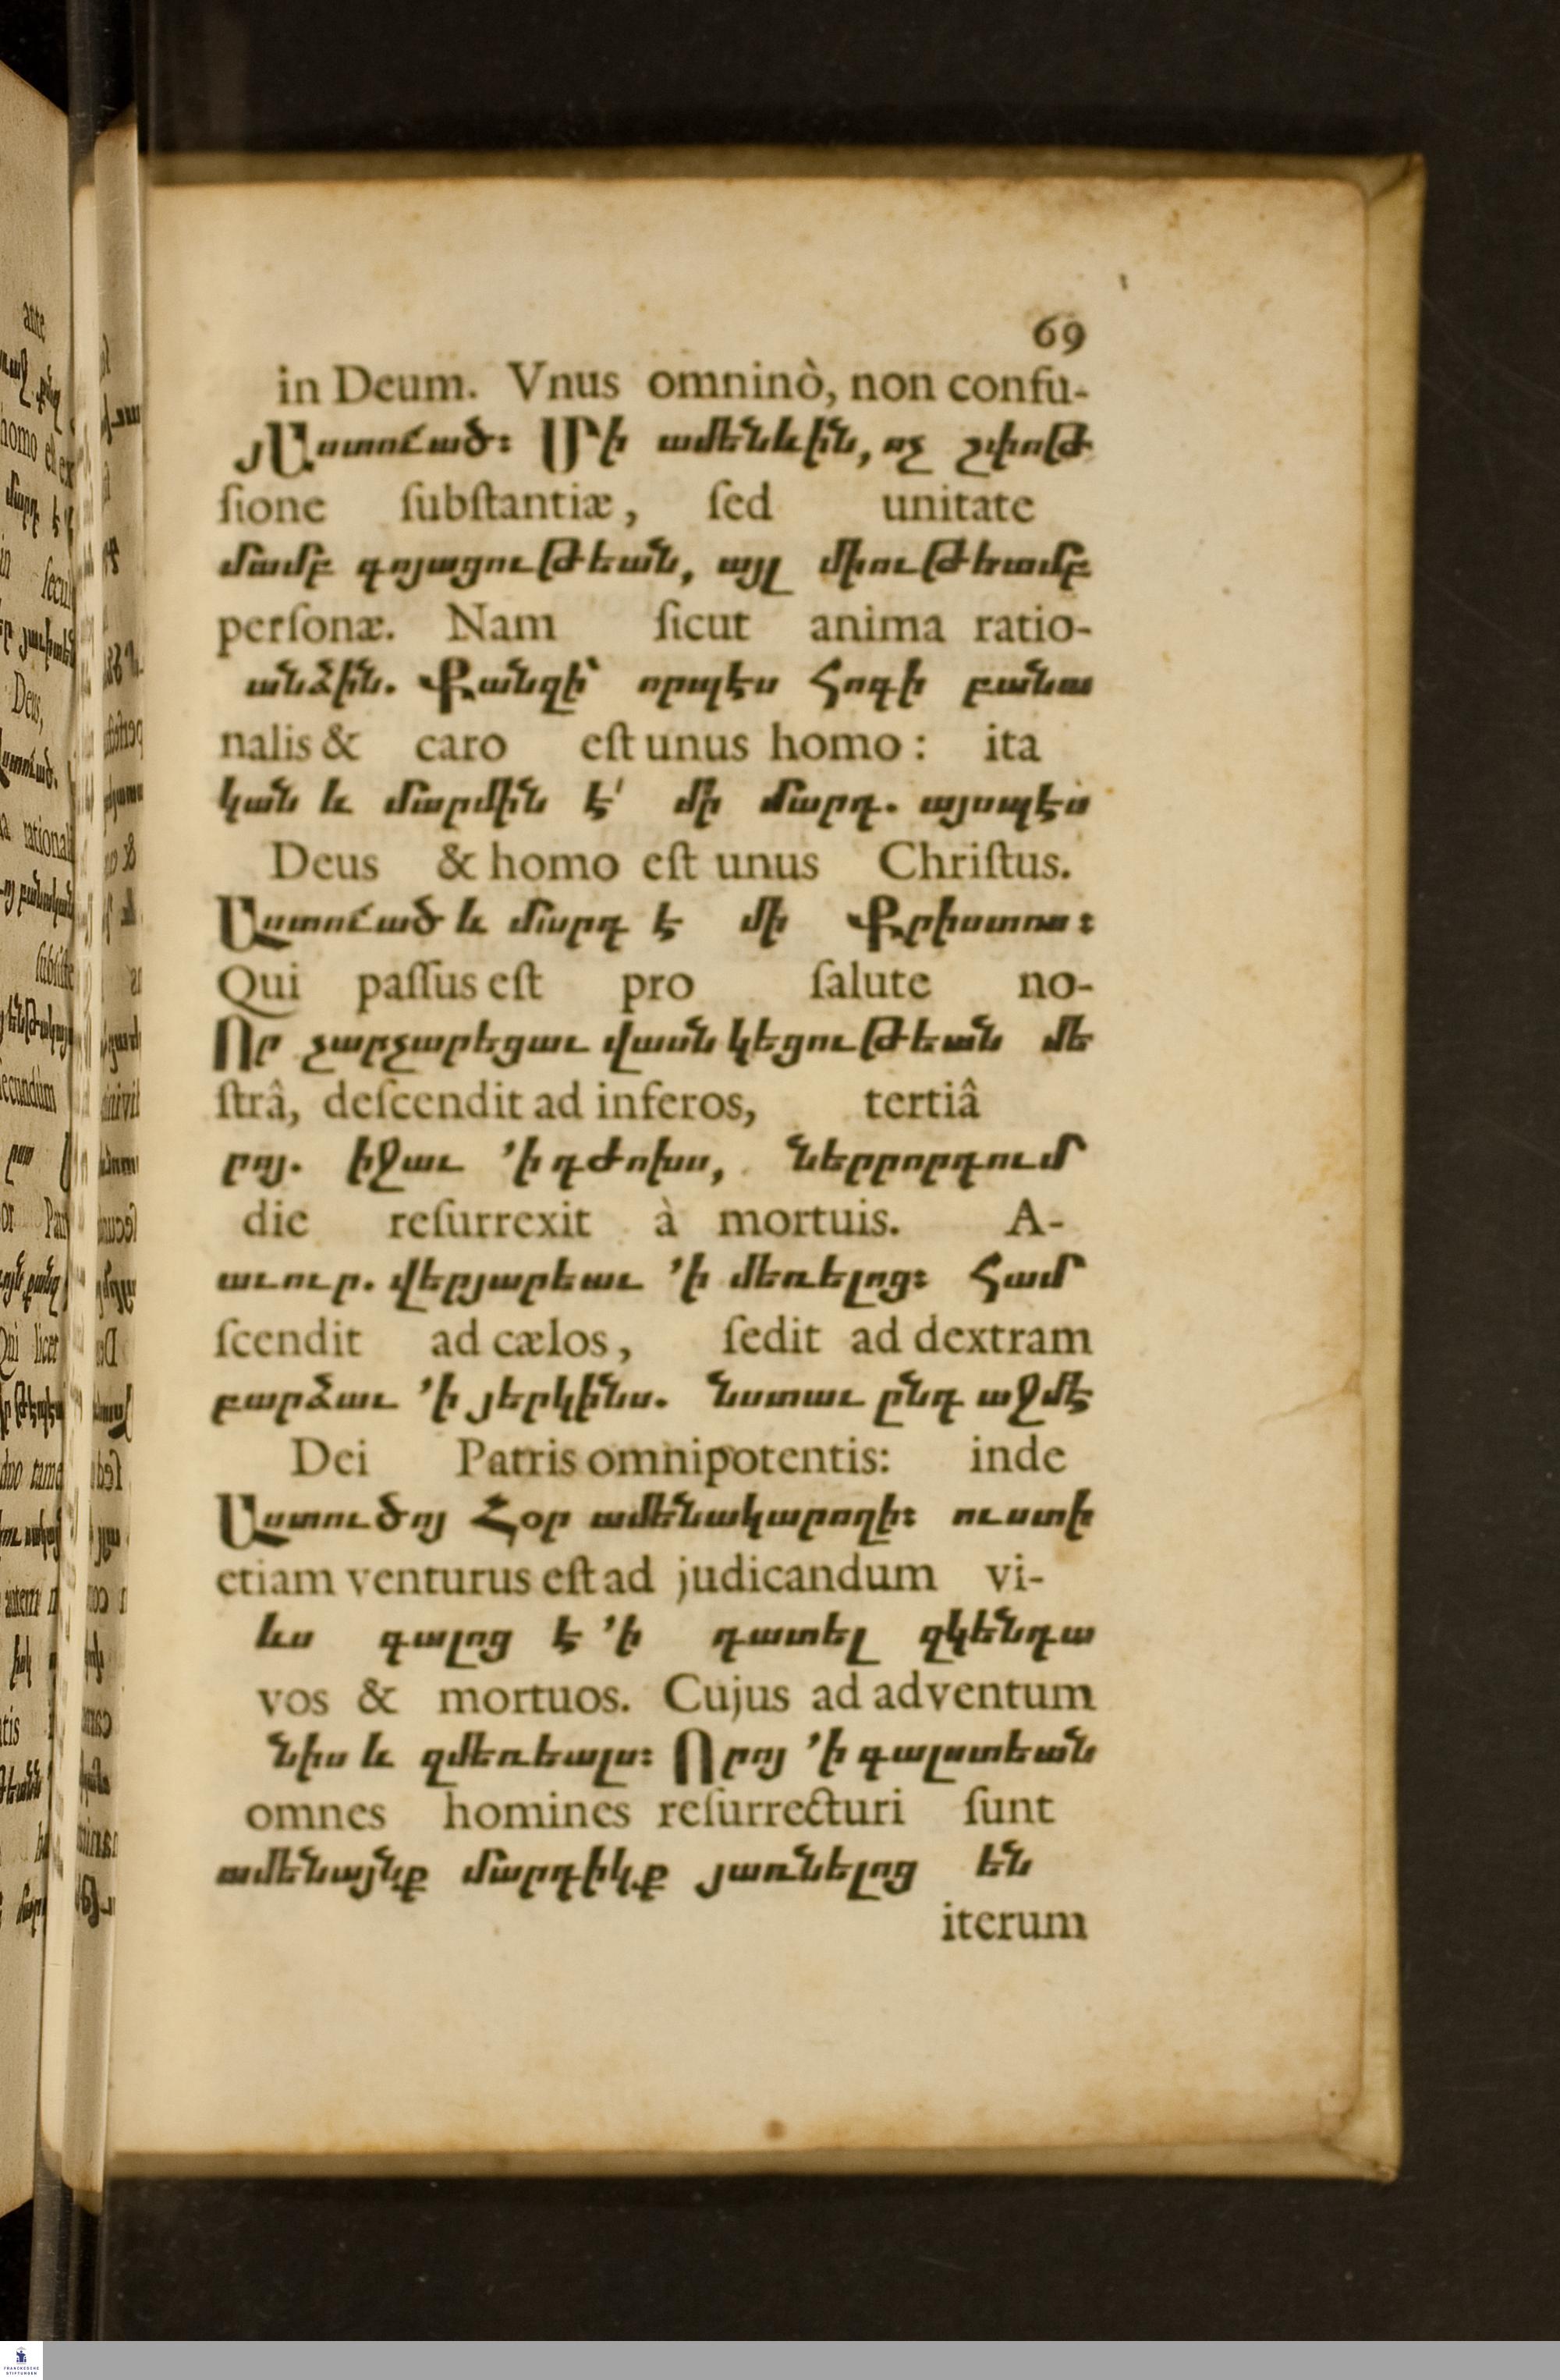 69
in Deum. Vnus omninò, non confu-
յԱստուած։ Մի ամենևին, ոչ շփոթ
ſione ſubſtantiæ, ſed unitate
մամբ գոյացութեան, այլ միութեամբ
perſonæ. Nam ſicut anima ratio-
անձին. Քանզի՝ որպէս հոգի բանա
nalis & caro eſt unus homo: ita
կան և մարմին է՛ մի մարդ. այսպէս
Deus & homo eſt unus Chriſtus.
Աստուած և մարդ է մի Քրիստոս։
Qui paſſus eſt pro ſalute no-
Որ չարչարեցաւ վասն կեցութեան մե
ſtrâ, deſcendit ad inferos, tertiâ
րոյ. իջաւ ՚ի դժոխս, ներրորդում
die reſurrexit à mortuis. A-
աւուր. վերյարեաւ ՚ի մեռելոց։ Համ
ſcendit ad cælos, ſedit ad dextram
բարձաւ ՚ի յերկինս. նստաւ ընդ աջմէ
Dei Patris omnipotentis: inde
Աստուծոյ Հօր ամենակարողի։ ուստի
etiam venturus eſt ad judicandum vi-
ևս գալոց է ՚ի դատել զկենդա
vos & mortuos. Cujus ad adventum
նիս և զմեռեալս։ Որոյ ՚ի գալստեան
omnes homines reſurrecturi ſunt
ամենայնք մարդիկք յառնելոց են
iterum